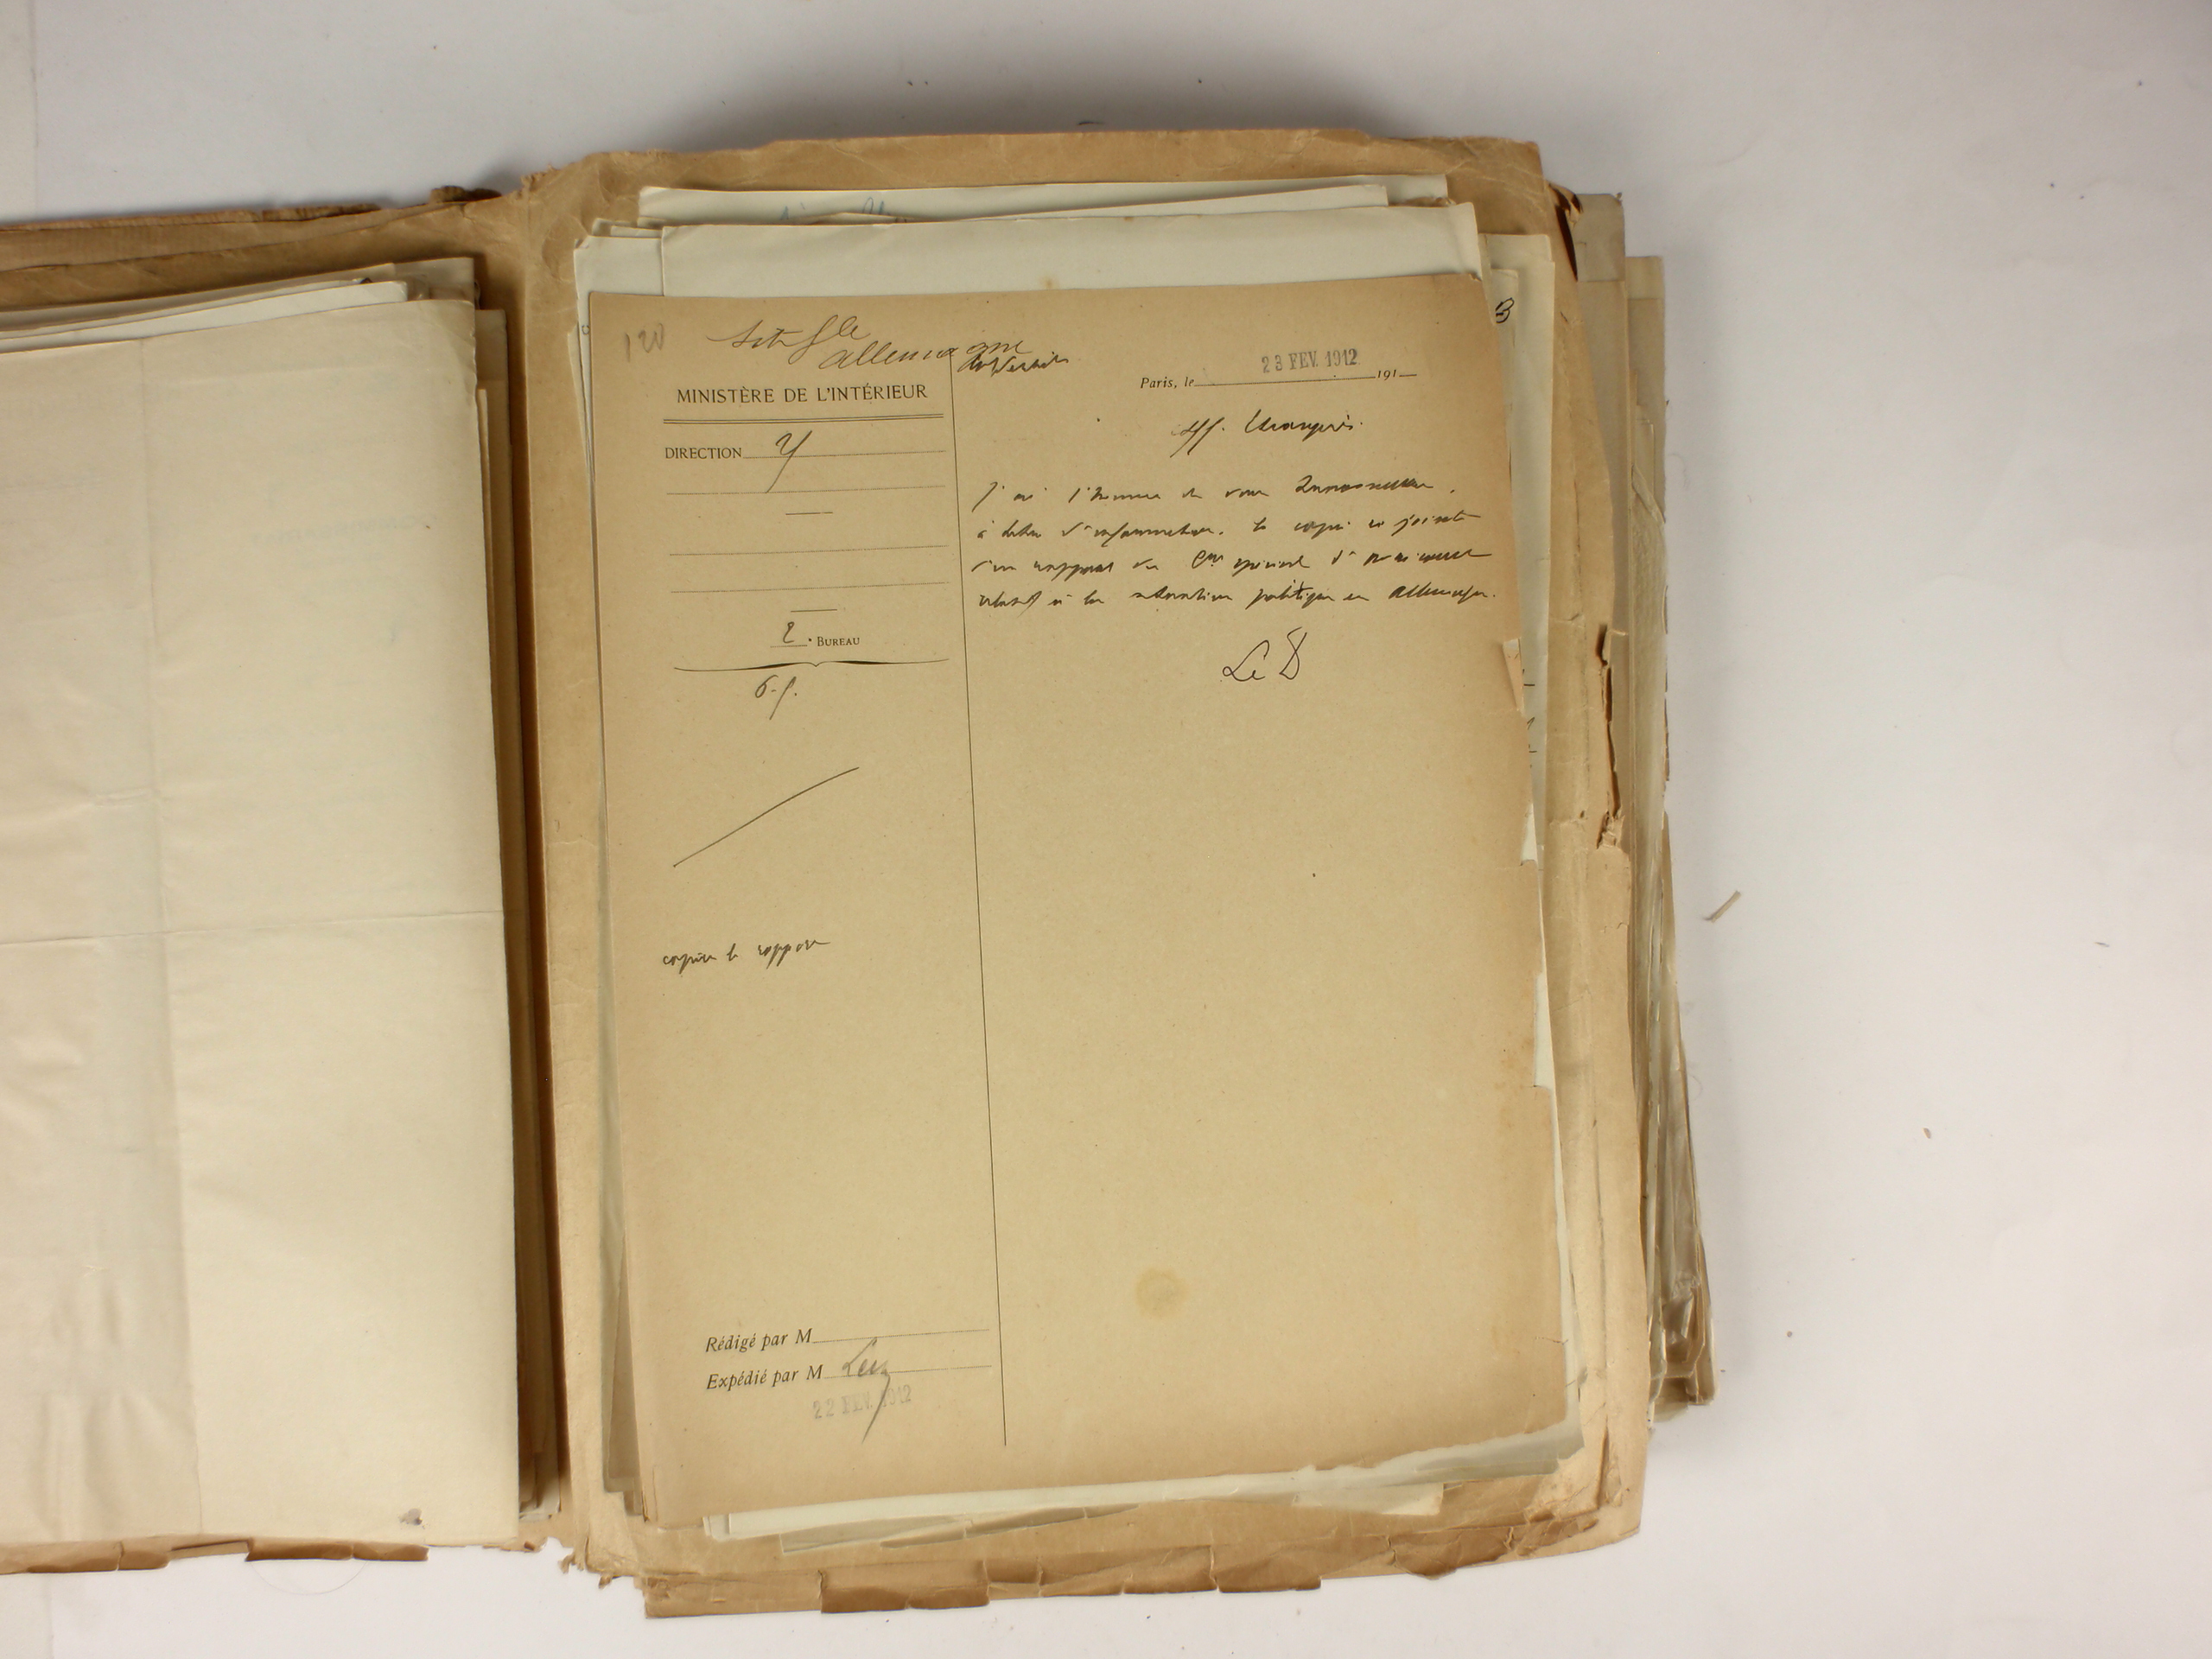 120
Sit Gle
Allemagne
MINISTÈRE DE L'INTÉRIEUR
DIRECTION
2e BUREAU
copier le rapport
Rédigé par M
Expédié par M
22 FEV. 1912
Paris, le 23 FEV. 1912 191
Aff. Etrangères.
J'ai l'honneur de vous transmettre,
à titre d'information, la copie ci jointe
d'un rapport du Cre spécial d'Avricourt
relatif à la situation politique en Allemagne.
Le D
B